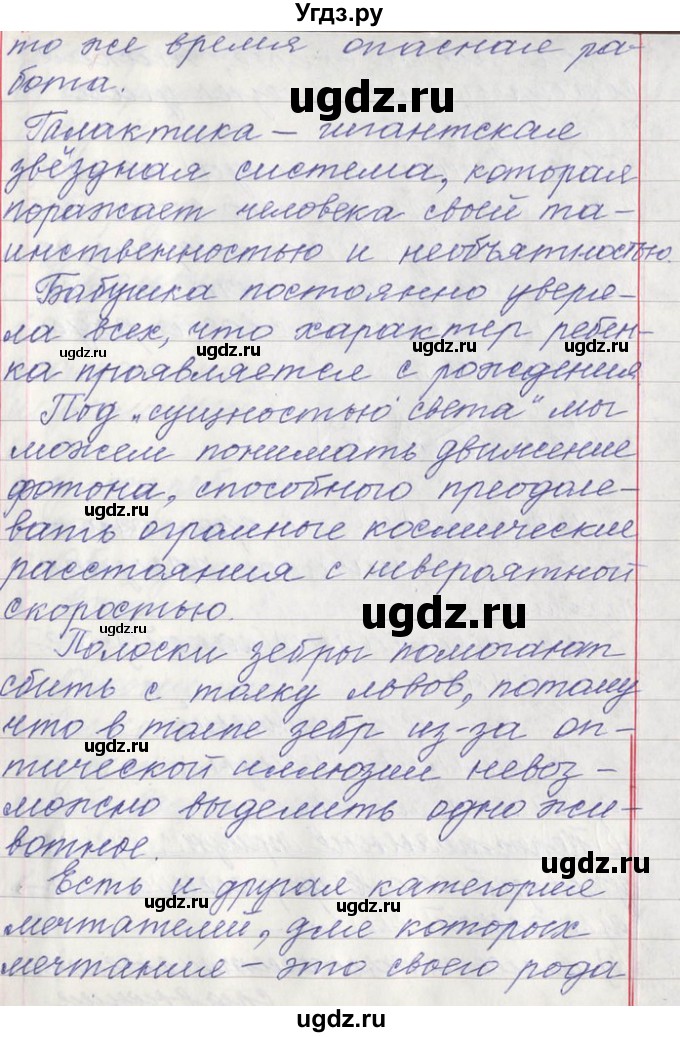 Угдз.ру
то же время опасная ра-
бота.
ugdz.ru
Галактика – гигантская
звёздная система, которая
поражает человека своей та-
инственностью и необъятностью.
Бабушка постоянно уверя-
ла всех, что характер ребен-
ugdz.ru ugdz.ru ugdz.ru
ка проявляется с рождения
Под „сущностью света“ мы
можем понимать движение
фотона, способного преодоле-
ugdz.ru ugdz.ru
вать огромные космические
расстояния с невероятной
скоростью.
ugdz.ru
ugdz.ru
Полоски зебры помогают
сбить с толку львов, потому
что в толпе зебр из-за оп-
ugdz.ru ugdz.ru
тической иллюзии невоз-
можно выделить одно жи-
вотное.
ugdz.ru
Есть и другая категория
ugdz.ru ugdz.ru
мечтателей, для которых
мечтания – это своего рода
ugdz.ru